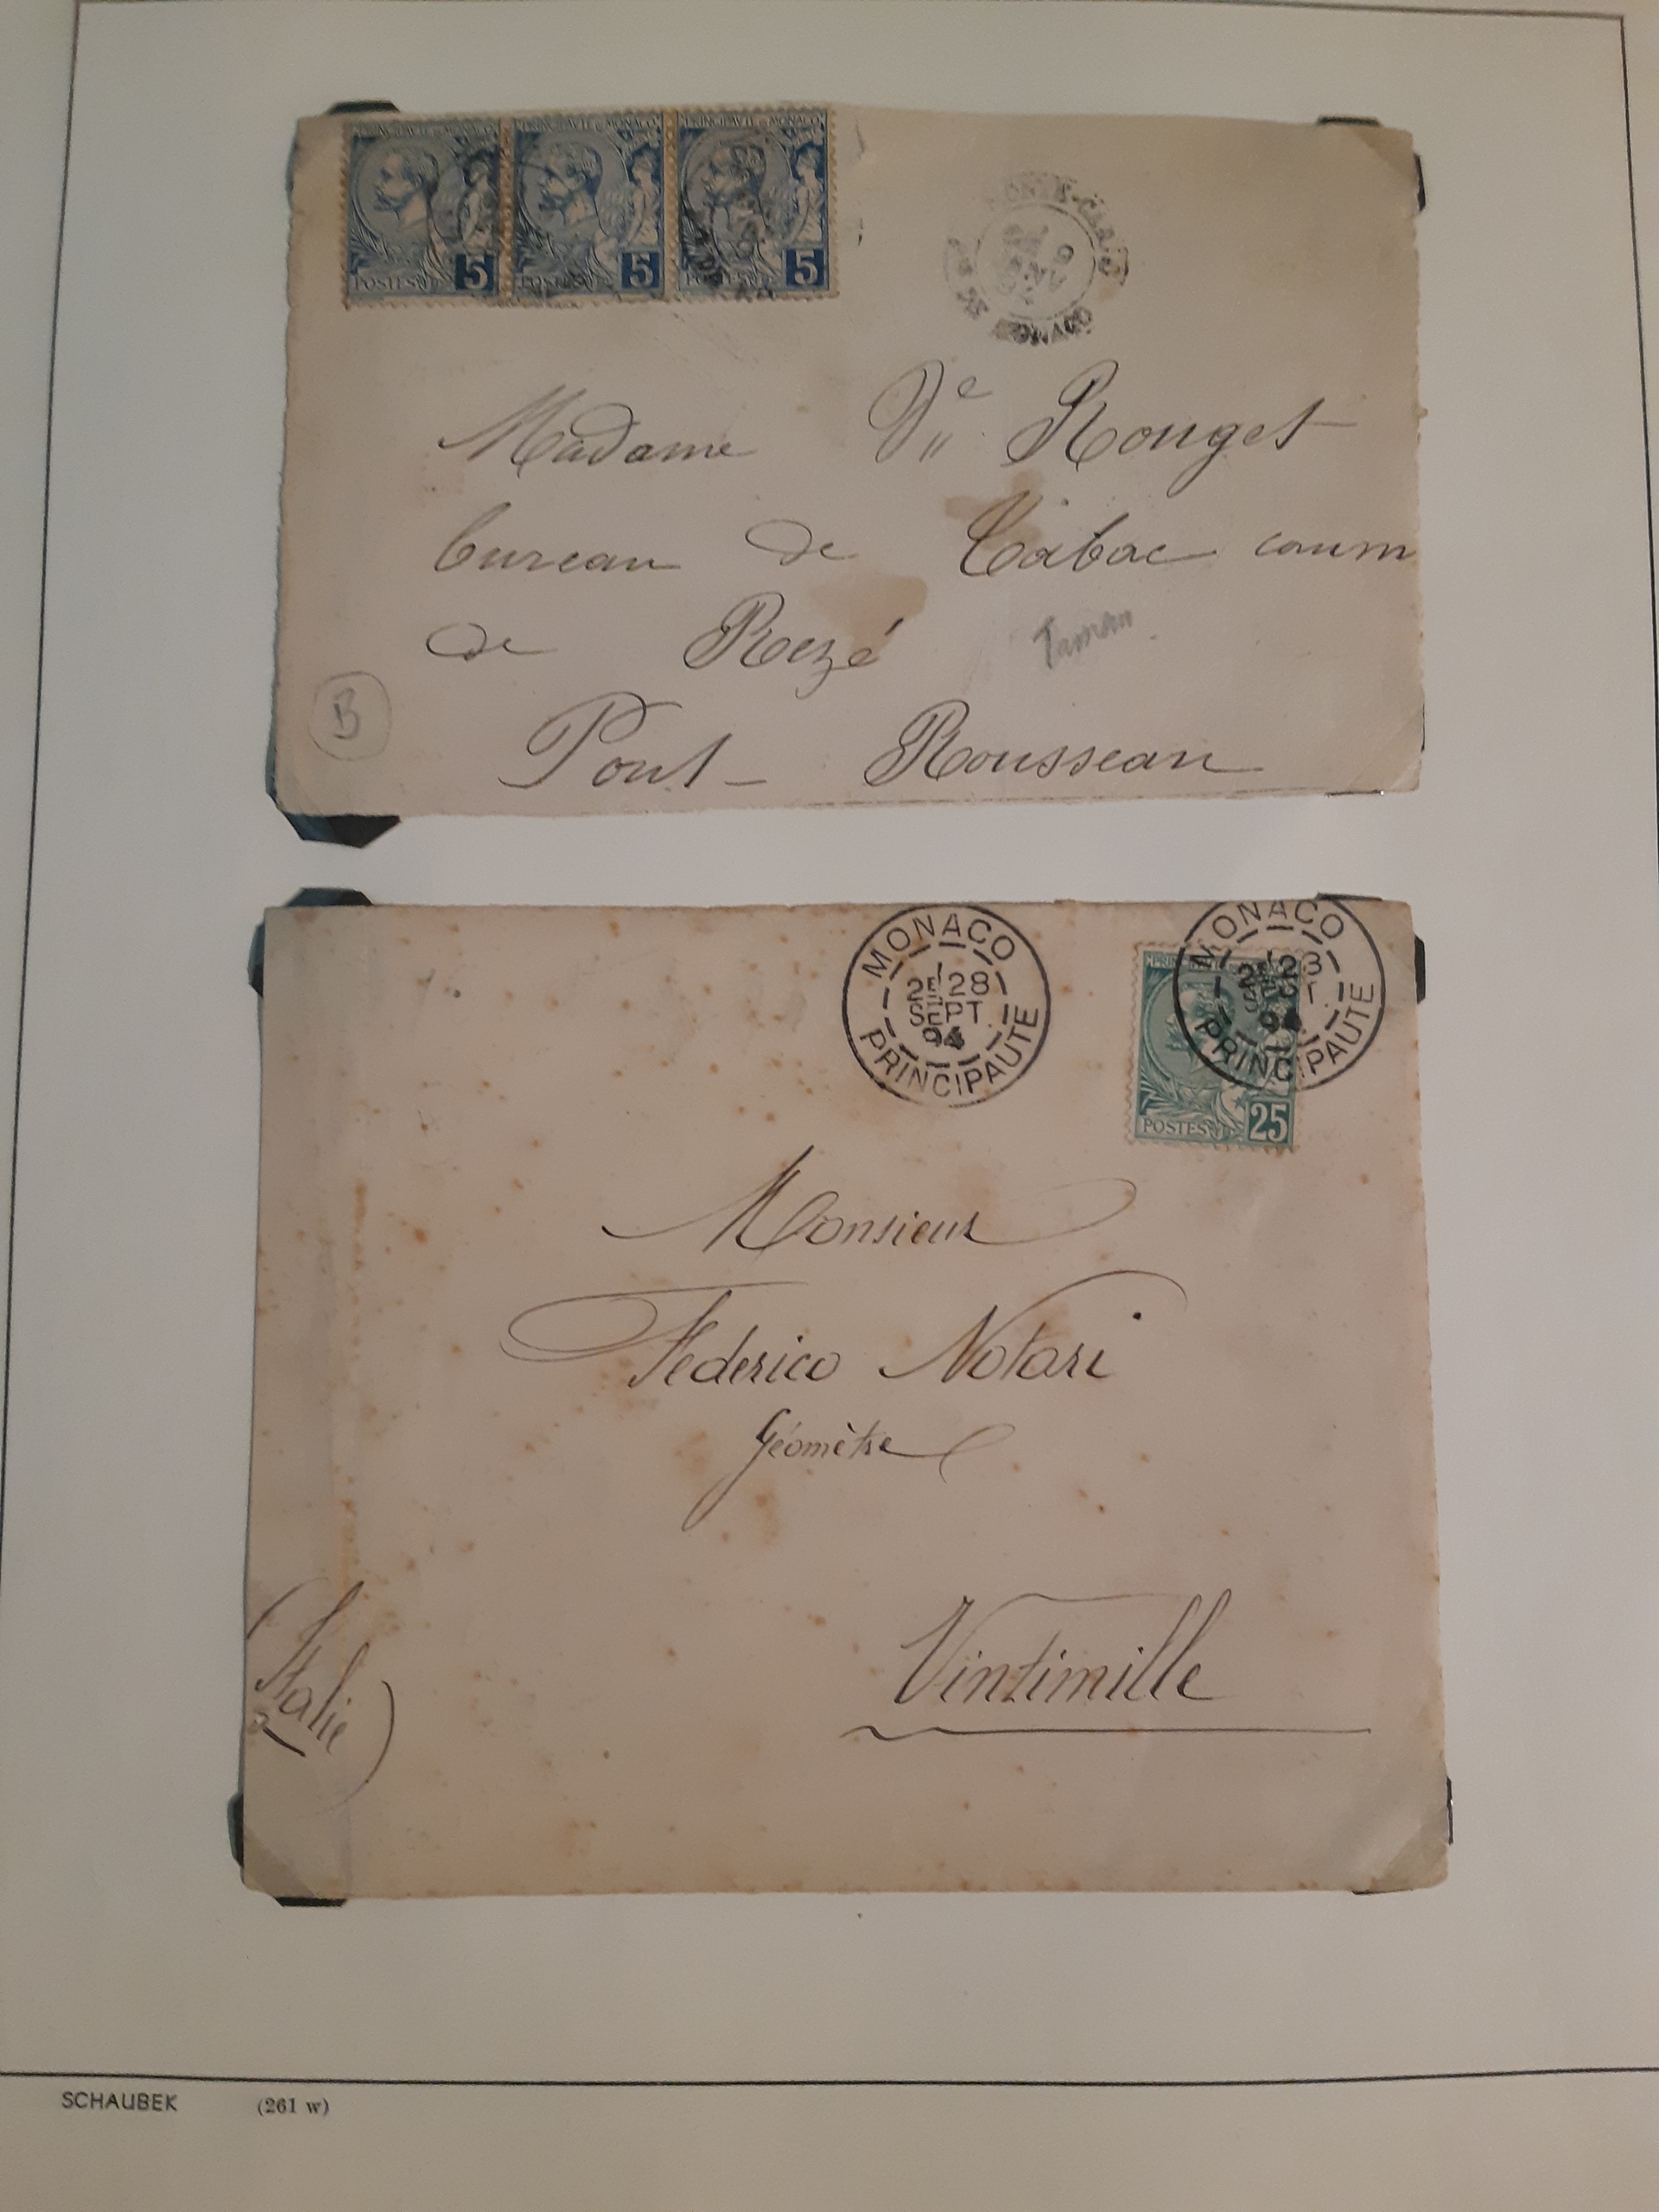 PRINCIPAUTE DE MONACO PRINCIPAUTE DE MONACO PRINCIPAUTE DE MONACO
POSTES 5 POSTES 5 POSTES 5
MONTE-CARLO
MONACO
Madame Vve Rouget
bureau de Tabac comm
de Rezé
B
Pont-Rousseau
MONACO
2E 28
SEPT
94
PRINCIPAUTE
MONACO
2E 28
94
PRINCIPAUTE
POSTES 25
Monsieur
Federico Notari
Géomètre
Vintimille
(Italie)
SCHAUBEK (261 w)